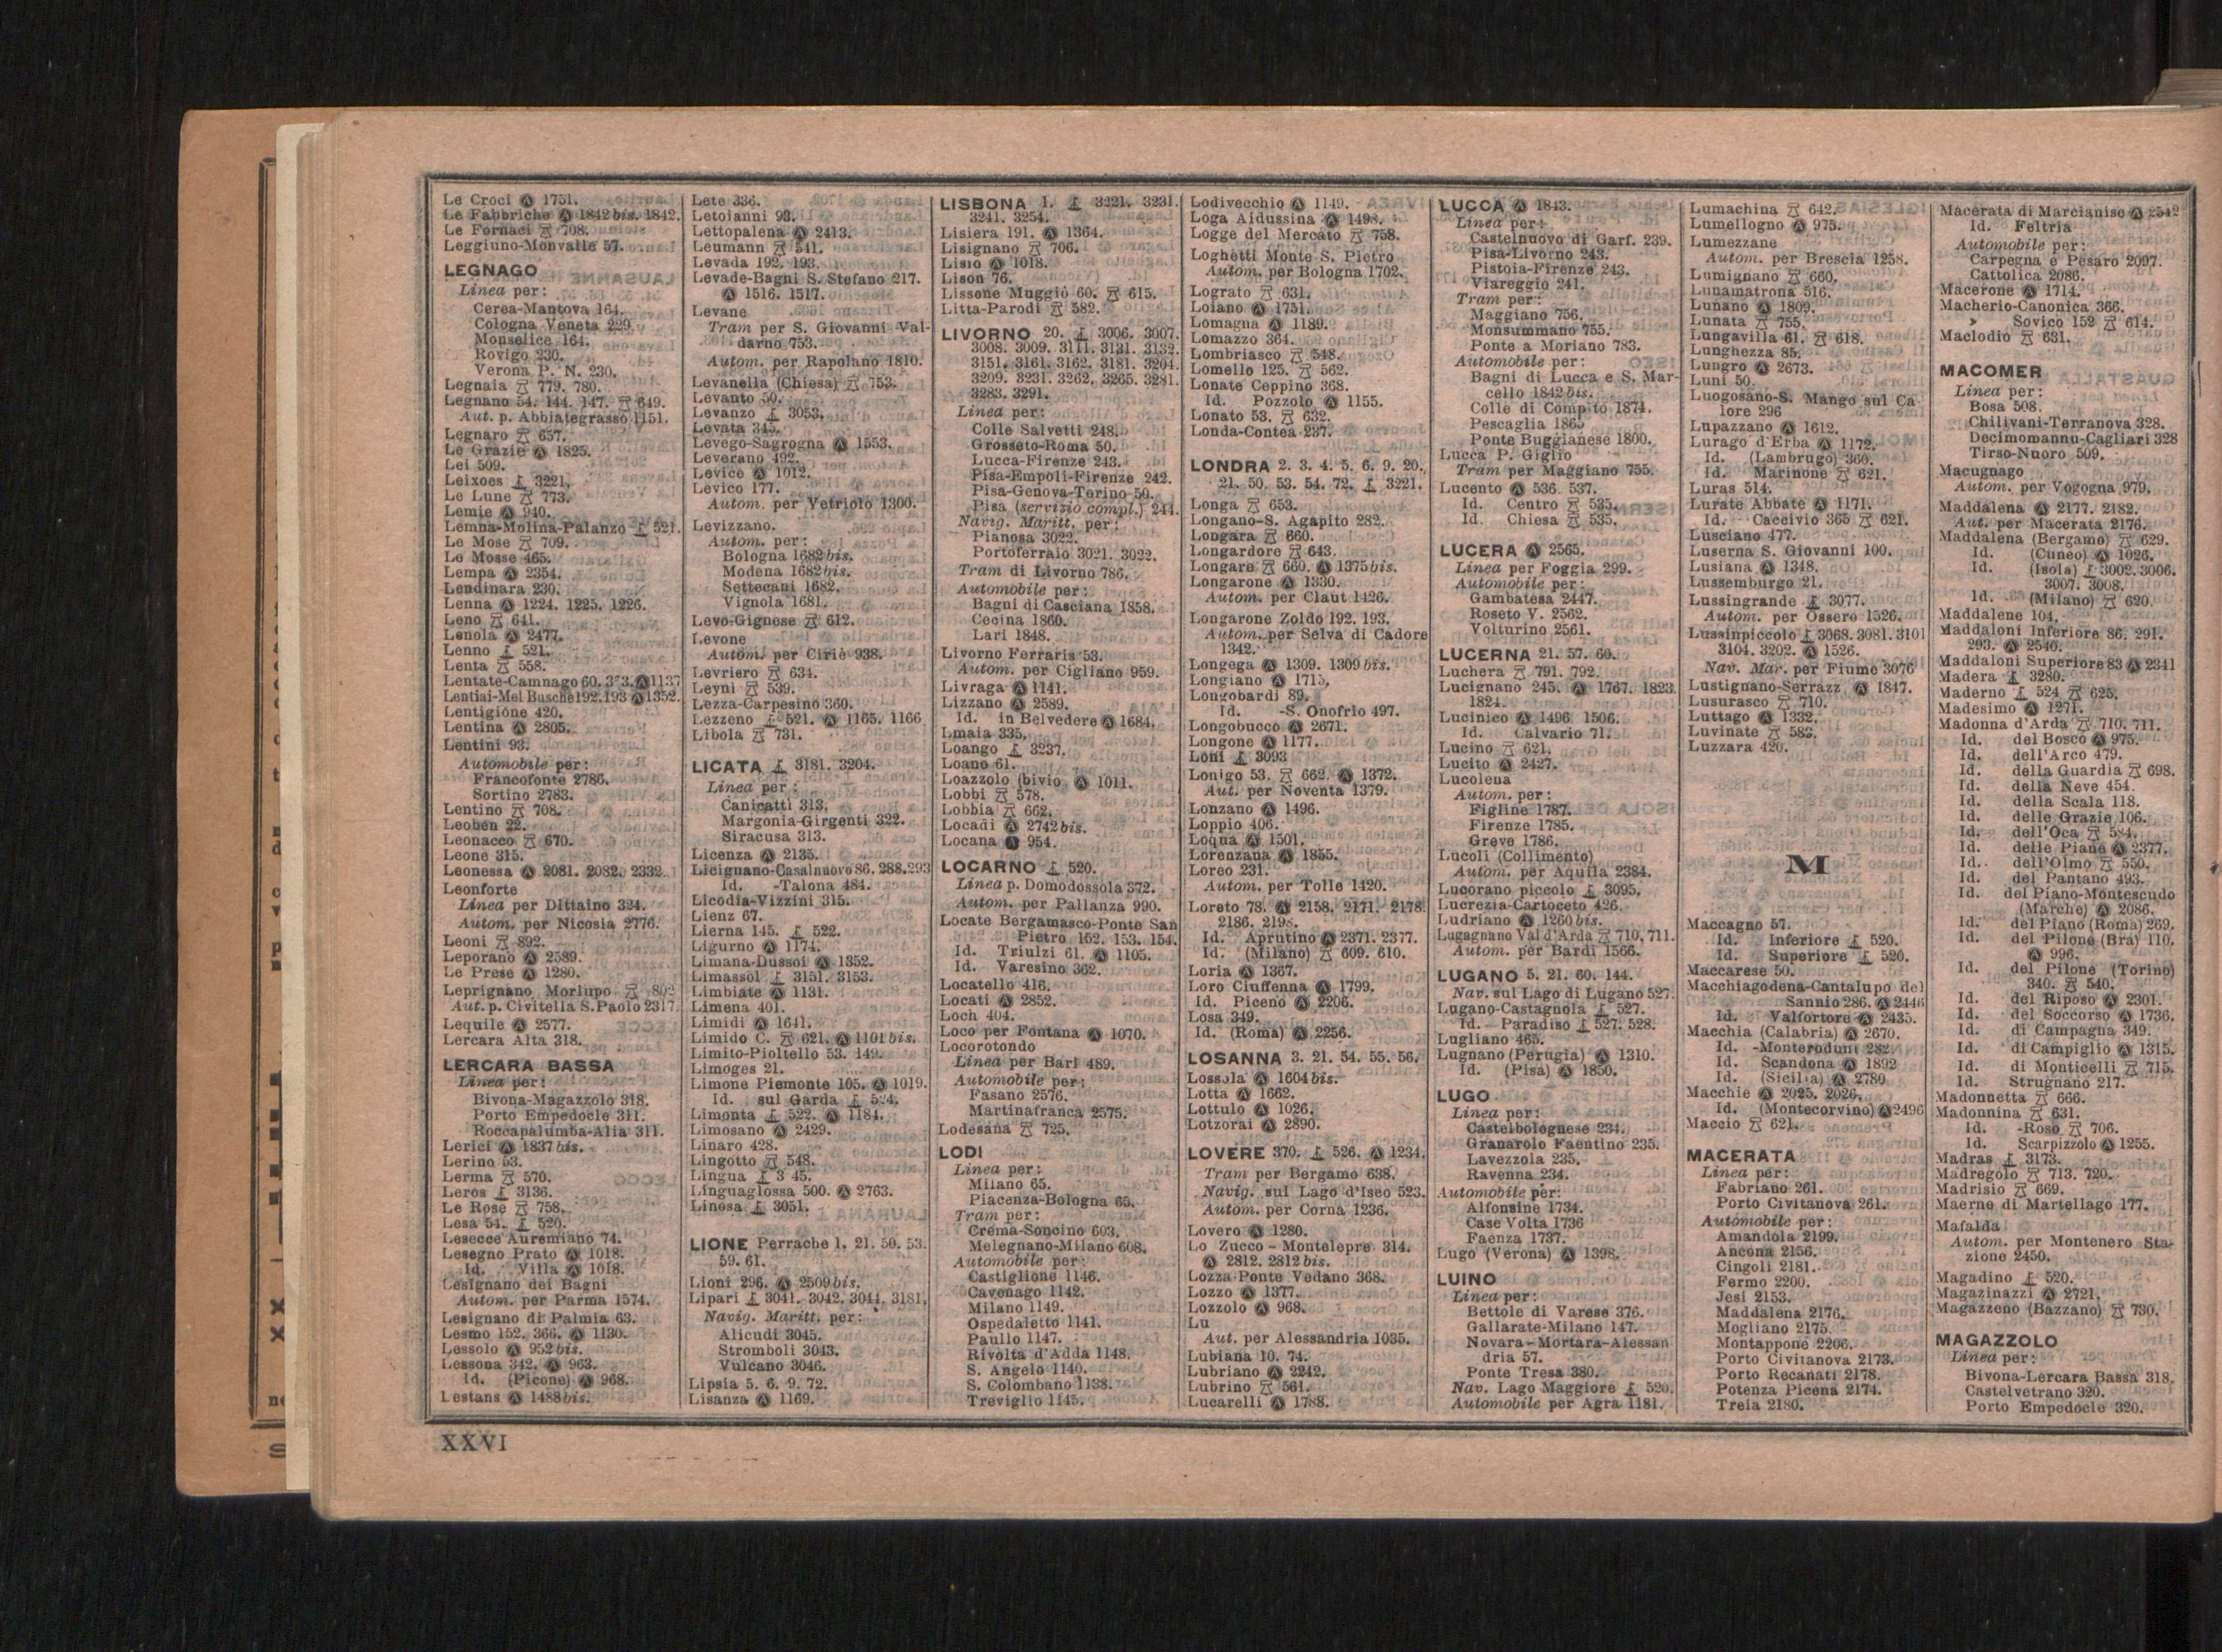 Le Croci Ⓐ 1751.
Le Fabbriche Ⓐ 1842 bis. 1842.
Le Fornaci 708.
Leggiuno-Monvalle 57.
LEGNAGO
Linea per:
Cerea-Mantova 164.
Cologna Veneta 229.
Monselice 164.
Rovigo 230.
Verona P. N. 230.
Legnaia 779. 780.
Legnano 54. 144. 147. 649.
Aut. p. Abbiategrasso 1151.
Legnaro 657.
Le Grazie Ⓐ 1825.
Lei 509.
Leixoes 3221.
Le Lune 773.
Lemie Ⓐ 940.
Lemna-Molina-Palanzo 521.
Le Mose 709.
Le Mosse 465.
Lempa Ⓐ 2354.
Lendinara 230.
Lenna Ⓐ 1224. 1225. 1226.
Leno 641.
Lenola Ⓐ 2477.
Lenno 521.
Lenta 558.
Lentate-Camnago 60. Ⓐ 1137
Lentiai-Mel Busche 192. 193 Ⓐ 1352.
Lentigione 420.
Lentina Ⓐ 2805.
Lentini 93.
Automobile per:
Francofonte 2786.
Sortino 2783.
Lentino 708.
Leoben 22.
Leonacco 670.
Leone 315.
Leonessa Ⓐ 2081. 2082. 2332.
Leonforte
Linea per Dittaino 324.
Autom. per Nicosia 2776.
Leoni 892.
Leporano Ⓐ 2589.
Le Prese Ⓐ 1280.
Leprignano Morlupo 802
Aut. p. Civitella S. Paolo 2317.
Lequile Ⓐ 2577.
Lercara Alta 318.
LERCARA BASSA
Linea per:
Bivona-Magazzolo 318.
Porto Empedocle 311.
Roccapalumba-Alia 311.
Lerici Ⓐ 1837 bis.
Lerino 53.
Lerma 570.
Leros 3136.
Le Rose 758.
Lesa 54. 520.
Lesecce Auremiano 74.
Lesegno Prato Ⓐ 1018.
Id. Villa Ⓐ 1018.
Lesignano dei Bagni
Autom. per Parma 1574.
Lesignano di Palmia 63.
Lesmo 152. 366. Ⓐ 1130.
Lessolo Ⓐ 952 bis.
Lessona 342. Ⓐ 963.
Id. (Picone) Ⓐ 968.
Lestans Ⓐ 1488 bis.
Lete 336.
Letoianni 93.
Lettopalena Ⓐ 2413.
Leumann 541.
Levada 192. 193.
Levade-Bagni S. Stefano 217.
Ⓐ 1516. 1517.
Levane
Tram per S. Giovanni Val-
darno 753.
Autom. per Rapolano 1810.
Levanella (Chiesa) 753.
Levanto 50.
Levanzo 3053.
Levata 345.
Levego-Sagrogna Ⓐ 1553.
Leverano 492.
Levice Ⓐ 1012.
Levico 177.
Autom. per Vetriolo 1300.
Levizzano.
Autom. per:
Bologna 1682 bis.
Modena 1682 bis.
Settecani 1682.
Vignola 1681.
Levo-Gignese 612.
Levone
Autom. per Ciriè 938.
Levriero 634.
Leyni 539.
Lezza-Carpesino 360.
Lezzeno 521. Ⓐ 1165. 1166
Libola 731.
LICATA 3181. 3204.
Linea per:
Canicattì 313.
Margonia-Girgenti 322.
Siracusa 313.
Licenza Ⓐ 2135.
Licignano-Casalnuovo 86. 288. 293
Id. -Talona 484.
Licodia-Vizzini 315.
Lienz 67.
Lierna 145. 522.
Ligurno Ⓐ 1174.
Limana-Dussoi Ⓐ 1352.
Limassol 3151. 3153.
Limbiate Ⓐ 1131.
Limena 401.
Limidi Ⓐ 1641.
Limido C. 621. Ⓐ 1101 bis.
Limito-Pioltello 53. 149.
Limoges 21.
Limone Piemonte 105. Ⓐ 1019.
Id. sul Garda 524.
Limonta 522. Ⓐ 1184.
Limosano Ⓐ 2429.
Linaro 428.
Lingotto 548.
Lingua 3 45.
Linguaglossa 500. Ⓐ 2763.
Linosa 3051.
LIONE Perrache 1. 21. 50. 53.
59. 61.
Lioni 296. Ⓐ 2509 bis.
Lipari 3041. 3042. 3044. 3181.
Navig. Maritt. per:
Alicudi 3045.
Stromboli 3043.
Vulcano 3046.
Lipsia 5. 6. 9. 72.
Lisanza Ⓐ 1169.
LISBONA 1. 3221. 3231.
3241. 3254.
Lisiera 191. Ⓐ 1364.
Lisignano 706.
Lisio Ⓐ 1018.
Lison 76.
Lissone Muggiò 60. 615.
Litta-Parodi 582.
LIVORNO 20. 3006. 3007.
3008. 3009. 3111. 3131. 3132.
3151. 3161. 3162. 3181. 3204.
3209. 3231. 3262. 3265. 3281.
3283. 3291.
Linea per:
Colle Salvetti 248.
Grosseto-Roma 50.
Lucca-Firenze 243.
Pisa-Empoli-Firenze 242.
Pisa-Genova-Torino 50.
Pisa (servizio compl.) 244.
Navig. Maritt. per:
Pianosa 3022.
Portoferraio 3021. 3022.
Tram di Livorno 786.
Automobile per:
Bagni di Casciana 1858.
Cecina 1860.
Lari 1848.
Livorno Ferraris 53.
Autom. per Cigliano 959.
Livraga Ⓐ 1141.
Lizzano Ⓐ 2589.
Id. in Belvedere Ⓐ 1684.
Lmaia 335.
Loango 3237.
Loano 61.
Loazzolo (bivio Ⓐ 1011.
Lobbi 578.
Lobbia 662.
Locadi Ⓐ 2742 bis.
Locana Ⓐ 954.
LOCARNO 520.
Linea p. Domodossola 372.
Autom. per Pallanza 990.
Locate Bergamasco-Ponte San
Pietro 152. 153. 154.
Id. Triulzi 61. Ⓐ 1105.
Id. Varesino 362.
Locatello 416.
Locati Ⓐ 2852.
Loch 404.
Loco per Fontana Ⓐ 1070.
Locorotondo
Linea per Bari 489.
Automobile per:
Fasano 2576.
Martinafranca 2575.
Lodesana 725.
LODI
Linea per:
Milano 65.
Piacenza-Bologna 65.
Tram per:
Crema-Soncino 603.
Melegnano-Milano 608.
Automobile per:
Castiglione 1146.
Cavenago 1142.
Milano 1149.
Ospedaletto 1141.
Paullo 1147.
Rivolta d'Adda 1148.
S. Angelo 1140.
S. Colombano 1138.
Treviglio 1145.
Lodivecchio Ⓐ 1149.
Loga Aidussina Ⓐ 1498.
Logge del Mercato 758.
Loghetti Monte S. Pietro
Autom. per Bologna 1702.
Lograto 631.
Loiano Ⓐ 1751.
Lomagna Ⓐ 1189.
Lomazzo 364.
Lombriasco 548.
Lomello 125. 562.
Lonate Ceppino 368.
Id. Pozzolo Ⓐ 1155.
Lonato 53. 632.
Londa-Contea 237.
LONDRA 2. 3. 4. 5. 6. 9. 20.
21. 50. 53. 54. 72. 3221.
Longa 653.
Longano-S. Agapito 282.
Longara 660.
Longardore 643.
Longare 660. Ⓐ 1375 bis.
Longarone Ⓐ 1330.
Autom. per Claut 1426.
Longarone Zoldo 192. 193.
Autom. per Selva di Cadore
1342.
Longega Ⓐ 1309. 1309 bis.
Longiano Ⓐ 1715.
Longobardi 89.
Id. -S. Onofrio 497.
Longobucco Ⓐ 2671.
Longone Ⓐ 1177.
Loni 3093
Lonigo 53. 662. Ⓐ 1372.
Aut. per Noventa 1379.
Lonzano Ⓐ 1496.
Loppio 406.
Loqua Ⓐ 1501.
Lorenzana Ⓐ 1855.
Loreo 231.
Autom. per Tolle 1420.
Loreto 78. Ⓐ 2158. 2171. 2178.
2186. 2198.
Id. Aprutino Ⓐ 2371. 2377.
Id. (Milano) 609. 610.
Loria Ⓐ 1367.
Loro Ciuffenna Ⓐ 1799.
Id. Piceno Ⓐ 2206.
Losa 349.
Id. (Roma) Ⓐ 2256.
LOSANNA 3. 21. 54. 55. 56.
Lossola Ⓐ 1604 bis.
Lotta Ⓐ 1662.
Lottulo Ⓐ 1026.
Lotzorai Ⓐ 2890.
LOVERE 370. 526. Ⓐ 1234.
Tram per Bergamo 638.
Navig. sul Lago d'Iseo 523.
Autom. per Corna 1236.
Lovero Ⓐ 1280.
Lo Zucco-Montelepre 314.
Ⓐ 2812. 2812 bis.
Lozza Ponte Vedano 368.
Lozzo Ⓐ 1377.
Lozzolo Ⓐ 968.
Lu
Aut. per Alessandria 1035.
Lubiana 10. 74.
Lubriano Ⓐ 2242.
Lubrino 561.
Lucarelli Ⓐ 1788.
LUCCA Ⓐ 1843.
Linea per:
Castelnuovo di Garf. 239.
Pisa-Livorno 243.
Pistoia-Firenze 243.
Viareggio 241.
Tram per:
Maggiano 756.
Monsummano 755.
Ponte a Moriano 783.
Automobile per:
Bagni di Lucca e S. Mar-
cello 1842 bis.
Colle di Compito 1874.
Pescaglia 1865
Ponte Buggianese 1800.
Lucca P. Giglio
Tram per Maggiano 755.
Lucento Ⓐ 536. 537.
Id. Centro 535.
Id. Chiesa 535.
LUCERA Ⓐ 2565.
Linea per Foggia 299.
Automobile per:
Gambatesa 2447.
Roseto V. 2562.
Volturino 2561.
LUCERNA 21. 57. 60.
Luchera 791. 792.
Lucignano 245. Ⓐ 1767. 1823.
1824.
Lucinico Ⓐ 1496. 1506.
Id. Calvario 71.
Lucino 621.
Lucito Ⓐ 2427.
Lucolena
Autom. per:
Figline 1787.
Firenze 1785.
Greve 1786.
Lucoli (Collimento)
Autom. per Aquila 2384.
Lucorano piccolo 3095.
Lucrezia-Cartoceto 426.
Ludriano Ⓐ 1260 bis.
Lugagnano Val d'Arda 710. 711.
Autom. per Bardi 1566.
LUGANO 5. 21. 60. 144.
Nav. sul Lago di Lugano 527.
Lugano-Castagnola 527.
Id. - Paradiso 527. 528.
Lugliano 465.
Lugnano (Perugia) Ⓐ 1310.
Id. (Pisa) Ⓐ 1850.
LUGO
Linea per:
Castelbolognese 234.
Granarolo Faentino 235.
Lavezzola 235.
Ravenna 234.
Automobile per:
Alfonsine 1734.
Case Volta 1736
Faenza 1737.
Lugo (Verona) Ⓐ 1398.
LUINO
Linea per:
Bettole di Varese 376.
Gallarate-Milano 147.
Novara-Mortara-Alessan
dria 57.
Ponte Tresa 380.
Nav. Lago Maggiore 520.
Automobile per Agra 1181.
Lumachina 642.
Lumellogno Ⓐ 975.
Lumezzane
Autom. per Brescia 1258.
Lumignano 660.
Lunamatrona 516.
Lunano Ⓐ 1809.
Lunata 755.
Lungavilla 61. 618.
Lunghezza 85.
Lungro Ⓐ 2673.
Luni 50.
Luogosano-S. Mango sul Ca-
lore 296
Lupazzano Ⓐ 1612.
Lurago d'Erba Ⓐ 1172.
Id. (Lambrugo) 360.
Id. Marinone 621.
Luras 514.
Lurate Abbate Ⓐ 1171.
Id. Caccivio 365 621.
Lusciano 477.
Luserna S. Giovanni 100.
Lusiana Ⓐ 1348.
Lussemburgo 21.
Lussingrande 3077.
Autom. per Ossero 1526.
Lussinpiccolo 3068. 3081. 3101
3104. 3202. Ⓐ 1526.
Nav. Mar. per Fiume 3076
Lustignano-Serrazz Ⓐ 1847.
Lusurasco 710.
Luttago Ⓐ 1332.
Luvinate 583.
Luzzara 420.
M
Maccagno 57.
Id. Inferiore 520.
Id. Superiore 520.
Maccarese 50.
Macchiagodena-Cantalupo del
Sannio 286. Ⓐ 2446
Id. Valfortore Ⓐ 2435.
Macchia (Calabria) Ⓐ 2670.
Id. -Monteroduni 282.
Id. Scandona Ⓐ 1892
Id. (Sicilia) Ⓐ 2780
Macchie Ⓐ 2025. 2026.
Id. (Montecorvino) Ⓐ 2496
Maccio 621.
MACERATA
Linea per:
Fabriano 261.
Porto Civitanova 261.
Automobile per:
Amandola 2199.
Ancona 2156.
Cingoli 2181.
Fermo 2200.
Jesi 2153.
Maddalena 2176.
Mogliano 2175.
Montappone 2206.
Porto Civitanova 2173.
Porto Recanati 2178.
Potenza Picena 2174.
Treia 2180.
Macerata di Marcianise Ⓐ 2542
Id. Feltria
Automobile per:
Carpegna e Pesaro 2097.
Cattolica 2086.
Macerone Ⓐ 1714.
Macherio-Canonica 366.
» Sovico 152 614.
Maclodio 631.
MACOMER
Linea per:
Bosa 508.
Chilivani-Terranova 328.
Decimomannu-Cagliari 328
Tirso-Nuoro 509.
Macugnago
Autom. per Vogogna 979.
Maddalena Ⓐ 2177. 2182.
Aut. per Macerata 2176.
Maddalena (Bergamo) 629.
Id. (Cuneo) Ⓐ 1026.
Id. (Isola) 3002. 3006.
3007. 3008.
Id. (Milano) 620.
Maddalene 104.
Maddaloni Inferiore 86. 291.
293. Ⓐ 2540.
Maddaloni Superiore 83 Ⓐ 2341
Madera 3280.
Maderno 524 625.
Madesimo Ⓐ 1271.
Madonna d'Arda 710. 711.
Id. del Bosco Ⓐ 975.
Id. dell'Arco 479.
Id. della Guardia 698.
Id. della Neve 454.
Id. della Scala 118.
Id. delle Grazie 106.
Id. dell'Oca 584.
Id. delle Piane Ⓐ 2377.
Id. dell'Olmo 550.
Id. del Pantano 493.
Id. del Piano-Montescudo
(Marche) Ⓐ 2086.
Id. del Piano (Roma) 269.
Id. del Pilone (Bra) 110.
Ⓐ 996.
Id. del Pilone (Torino)
340. 540.
Id. del Riposo Ⓐ 2301.
Id. del Soccorso Ⓐ 1736.
Id. di Campagna 349.
Id. di Campiglio Ⓐ 1315.
Id. di Monticelli 715.
Id. Strugnano 217.
Madonnetta 666.
Madonnina 631.
Id. -Roso 706.
Id. Scarpizzolo Ⓐ 1255.
Madras 3173.
Madregolo 713. 720.
Madrisio 669.
Maerne di Martellago 177.
Mafalda
Autom. per Montenero Sta-
zione 2450.
Magadino 520.
Magazinazzi Ⓐ 2721.
Magazzeno (Bazzano) 730.
MAGAZZOLO
Linea per:
Bivona-Lercara Bassa 318.
Castelvetrano 320.
Porto Empedocle 320.
XXVI